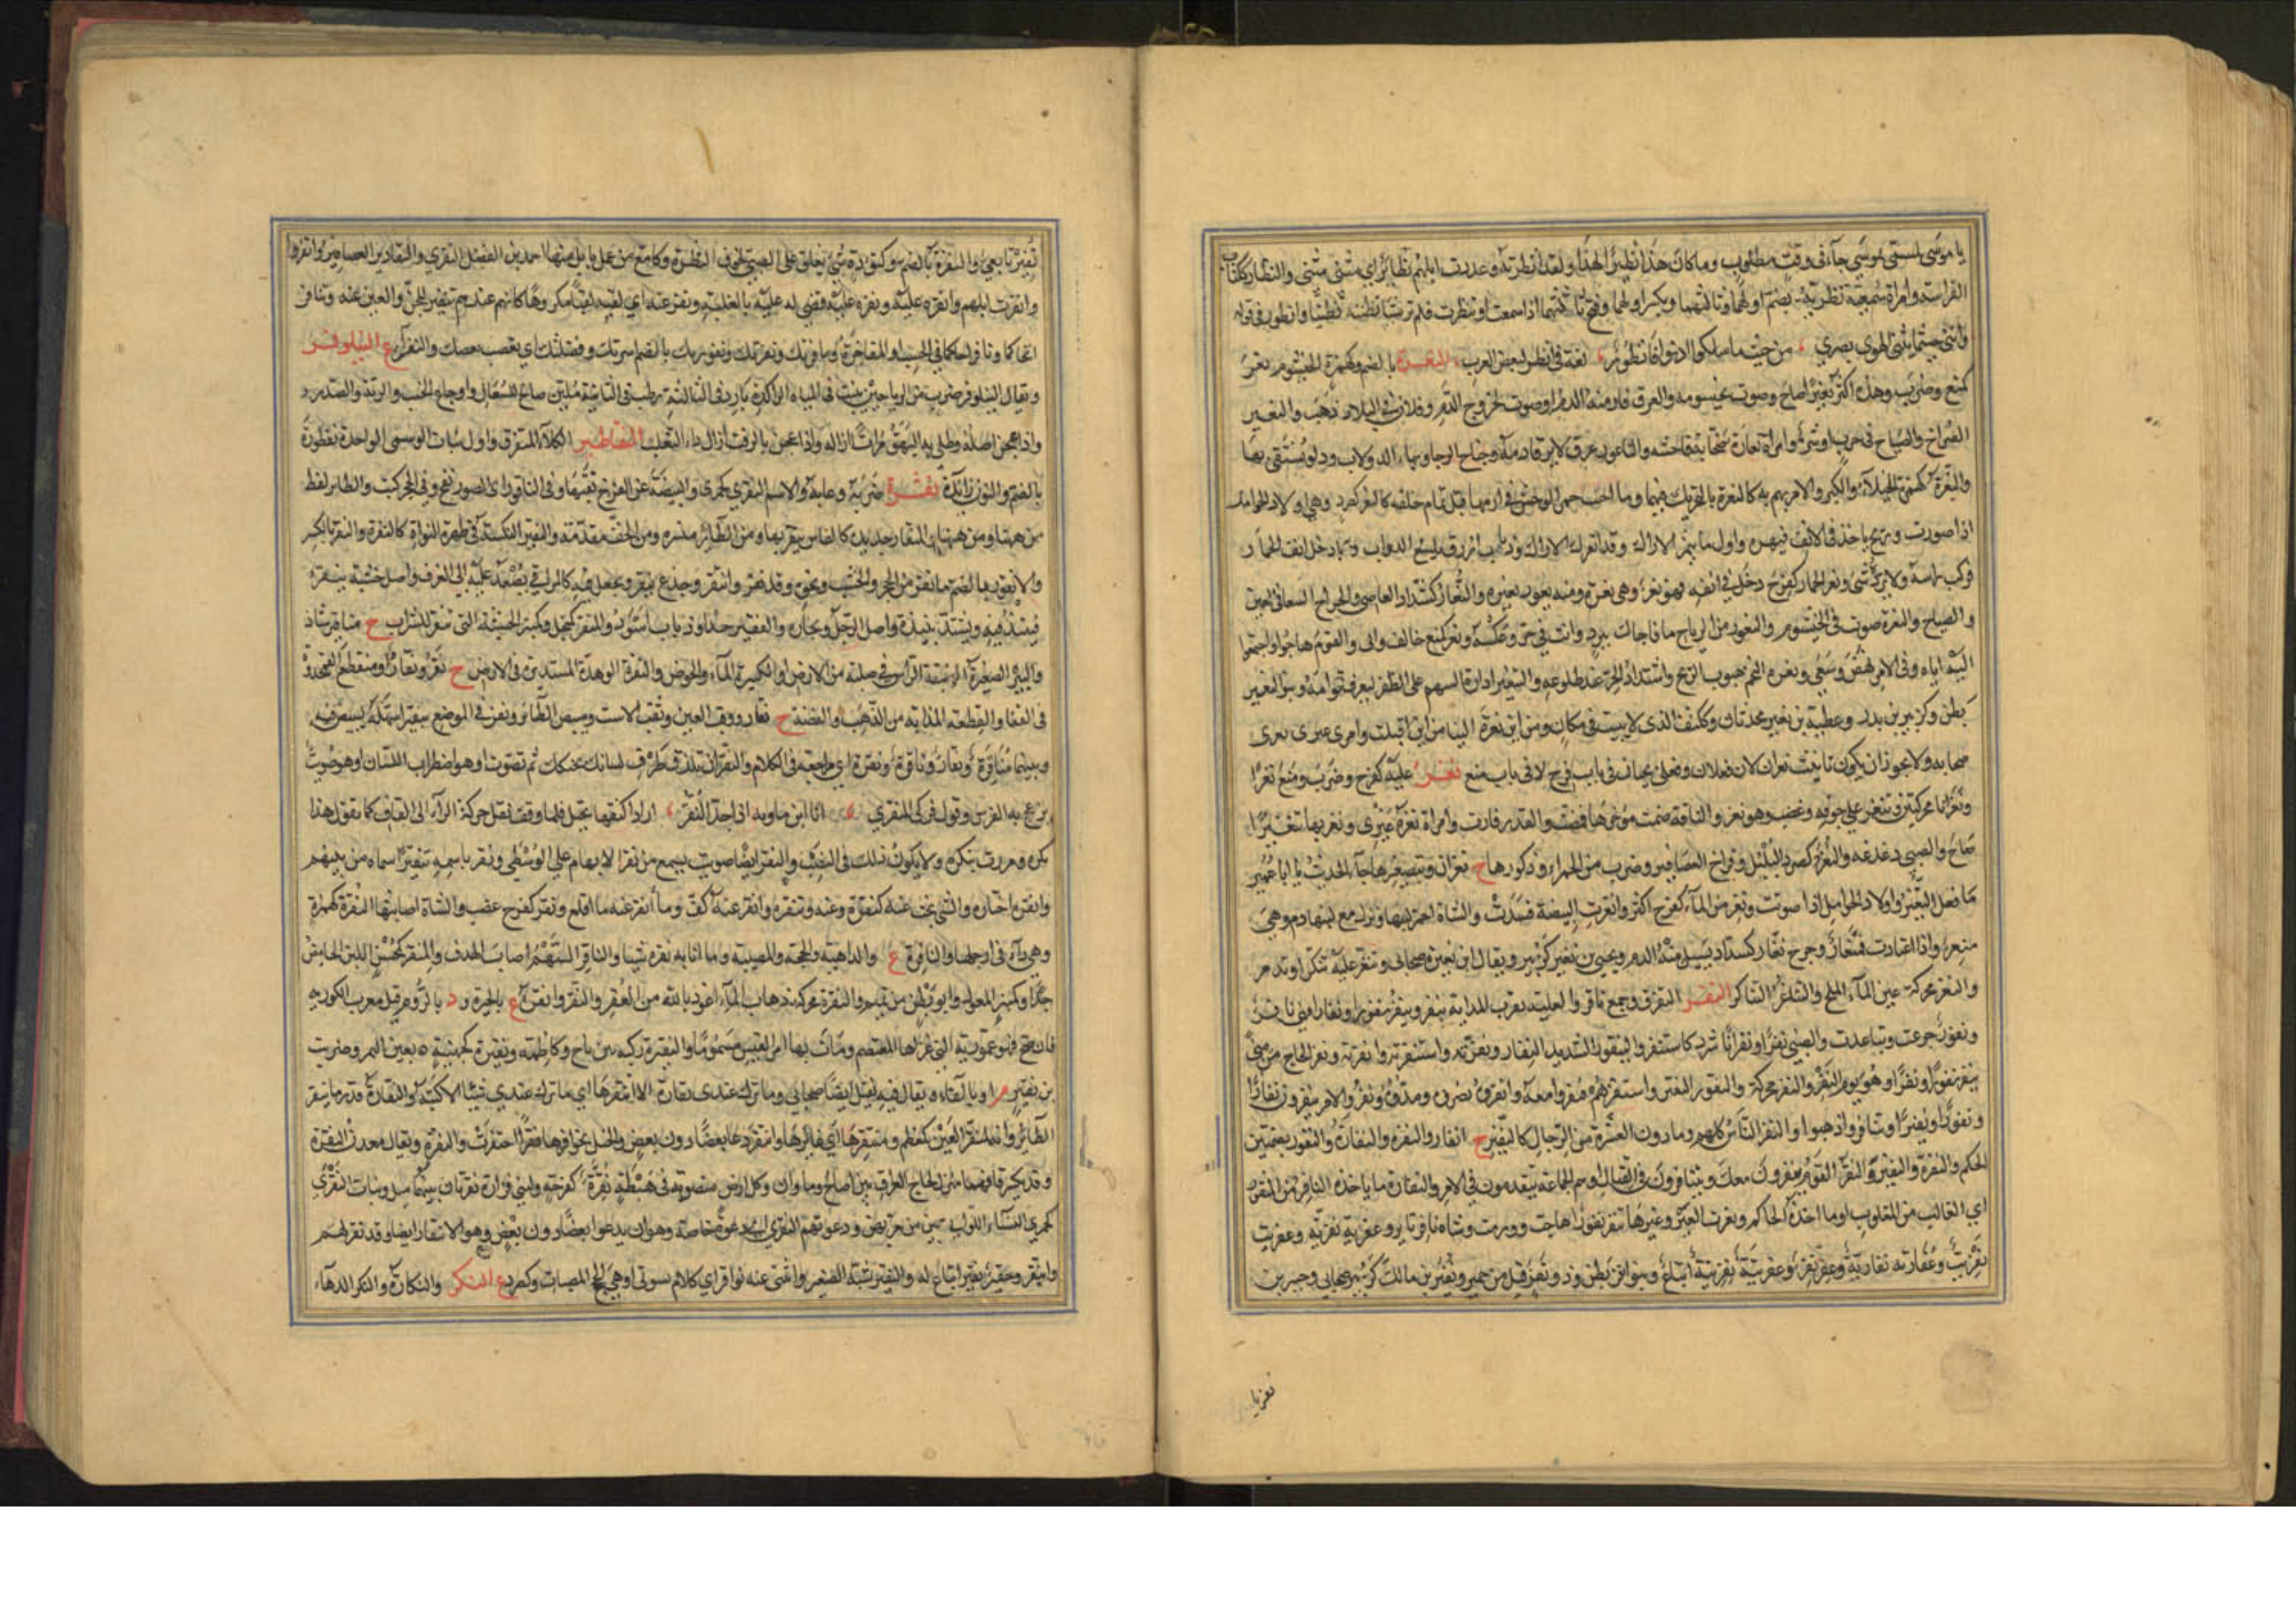 يا موسى لمستقى موسى جاء في وقت مطلوب وما كان هذا نظيرا لهذا ولقد انظرته وعددت ابلهم نظائر اي مثنى مثنى والنظار ككتاب
الفراسة وامراة سمعنة نظرنة بضم اولهما وثالثهما وبكسر اولهما وفتح ثالثهما اذا سمعت او تنظرت فلم تر شيئا تظنته تظنيا وانظور في قوله
وانني حيثما يثني الهوى بصري من حيث ما سلكوا ادنو فانظور لغة في انظر لبعض العرب النعرة بالضم وكهمزة الخيشوم نعر
كمنع وضرب وهذه اكثر نعيرا صاح وصوت بخيشومه والعرق فار منه الدم او صوت لخروج الدم وفلان في البلاد ذهب والنعير
الصراخ والصياح في حرب او شر وامراة نعارة صخابة فحاشة والناعور عرق لا يرقا دمه وجناح الرحا وبهاء الدولاب ودلو يستقى بها
والنعرة كهمزة الخيلاء والكبر والامر يهم به كالنعرة بالتحريك فيهما وما اجنت حمر الوحش في ارحامها قبل تمام خلقه كالنعر كصرد وهي اولاد الحوامل
اذا صورت وريح ياخذ في الانف فيهزه واول ما يثمر الاراك وقد انعر الاراك وذباب ازرق يلسع الدواب وربما دخل انف الحمار
فركب راسه ولا يرده شئ ونعر الحمار كفرح دخل في انفه فهو نعر وهي نعرة ومنه بعير ونعار كشداد العاصي والجراح السعاء في الفتن
والصياح والنعرة صوت في الخيشوم والنعور من الرياح ما فاجاك ببرد وانت في حر وعكسه ونعر كمنع خالف وابى والقوم هاجوا واجتمعوا
اليه اياه وفي الامر نهض وسعى ونعرة النجم هبوب الريح واشتداد الحر عند طلوعه والتنعير ادارة السهم على الظفر ليعرف قوامه وبنو النعير
بطن وكزبير بن بدر وعطية بن نعير محدثان وككتف الذي لا يثبت في مكان ومن اين نعرت الينا من اين اقبلت وامرى عبرى نعرى
صخابة ولا يجوز ان يكون تانيث نعران لان فعلان وفعلى يجيان في باب فرح لا في باب منع نغر عليه كفرح وضرب ومنع نغرا
ونغرانا محركتين وتنغر غلى جوفه وغضب وهو نغر والناقة ضمت مؤخرها فمضت والقدر فارت وامراة نغرة غيرى ونغر بها تنغيرا
صاح والصبي دغدغه والنغر كصرد البلبل وفراخ العصافير وضرب من الحمر او ذكورها ج نغران وبتصغيرها جاء الحديث يا ابا عمير
ما فعل النغير واولاد الحوامل اذا صوتت ونغر من الماء كفرح اكثر وانغرت البيضة فسدت والشاة احمر لبنها ونزل مع لبنها دم وهي
منغر واذا اعتادت فمنغار وجرح نغار كشداد يسيل منه الدم ويحيى بن نغير كزبير ويقال ابن نعيرة صحابي وتنغر عليه تنكر او تذمر
والنغر محركة عين الماء الملح والتناغر التناكر النفر التفرق وجمع نافر والغلبة نفرت الدابة تنفر وتنفر نفورا ونفارا فهي نافر
ونفور جزعت وتباعدت والظبي نفرا ونفرانا شرد كاستنفر واليفور الشديد النفار ونفرته واستنفرته وانفرته ونفر الحاج من منى
ينفر نفرا ونفورا وهو يوم النفر والنفر محركة والنفور والنفير واستنفرهم فنفروا معه وانفروه نصروه ومدوه ونفروا للامر ينفرون نفارا
ونفورا ونفيرا وتنافروا ذهبوا والنفر الناس كلهم وما دون العشرة من الرجال كالنفير ج انفار والنفرة والنفارة والنفورة بضمتين
الحكم والنفرة والنفير والنفر القوم ينفرون معك ويتنافرون في القتال او هم الجماعة يتقدمون في الامر والنفارة ما ياخذه النافر من المنفور
اي الغالب من المغلوب او ما اخذه الحاكم ونفرت العين وغيرها تنفر نفورا هاجت وورمت وشاة نافر ناثر وعفرية نفرية وعفريت
نفريت وعفارية نفارية وعفر نفر وعفريتة نفريتة اتباع وبنو نفر بطن وذو نفر قيل من حمير ونفير بن مالك كزبير صحابي وجبير بن
نفر تا
نفير تابعي والنفرة بالضم وكتؤدة شئ يعلق على الصبي لخوف النظرة وكامع من عمل بابل منها احمد بن الفضل النفري والنفارير العصافير وانفروا
وانفرت ابلهم وانفره عليه ونفره عليه قضى له عليه بالغلبة ونفر عنه اي لقبه لقبا مكروها كانهم عندهم تنفير للجن والعين عنه وتنافر
اتحاكما ونافرا حاكما في الحسب او المفاخرة ونفرتك ونفورتك بالضم اسرتك وفصيلتك التي تغضب لغضبك والنفراء ع النيلوفر
ويقال النينوفر ضرب من الرياحين ينبت في المياه الراكدة بارد في الثالثة رطب في الثانية ملين صالح للسعال واوجاع الجنب والرئة والصدر
واذا عجن اصله وطلي به البهق مرات ازاله واذا عجن بالزفت ازال داء الثعلب النفاطير الكلا المتفرق واول نبات الوسمي الواحدة نفطورة
بالضم والنون زائدة نقره ضربه وعابه والاسم النقرى كجمزى والبيضة عن الفرخ نقبها وفي الناقور اي الصور نفخ وفي الحجر كتب والطائر لقط
من ههنا ومن ههنا والمنقار حديدة كالفاس ينقر بها ومن الطائر منسره ومن الخف مقدمه والنقير النكتة في ظهر النواة كالنقرة والنقر بالكسر
والانقور بالضم ما نقر من الحجر والخشب ونحوه وقد نقر وانتقر وجذع ينقر ويجعل فيه كالمراقي يصعد عليه الى الغرف واصل خشبة ينقر
فينبذ فيه ويشتد نبيذه واصل الرجل ونجاره والفقير جدا وذباب اسود والمنقر كمحفل وكمنبر الخشبة التي تنقر للشراب ج مناقير شاذ
والبئر الصغيرة الضيقة الراس في صلبة من الارض او الكثيرة الماء والحوض والنقرة الوهدة المستديرة في الارض ج نقر ونقار ومنقطع القمحدوة
في القفا والقطعة المذابة من الذهب والفضة ج نقار ووقب العين وثقب الاست ومبيض الطائر ونقر في الموضع تنقيرا سهله ليبيض فيه
وبينهما مناقرة ونقار وناقرة ونقرة اي مراجعة في الكلام والنقر ان تلزق طرف لسانك بحنكك ثم تصوت او هو اضطراب اللسان او هو صويت
يزعج به الفرس وقول فدكي المنقري انا ابن ماوية اذ جد النقر اراد النقر بالخيل فلما وقف نقل حركة الراء الى القاف كما يقول هذا
بكر ومررت ببكر ولا يكون ذلك في النصب والنقر ايضا صويت يسمع من نقر الابهام على الوسطى ونقر باسمه تنقيرا سماه من بينهم
وانتقره اختاره والشئ بحث عنه كنقره وعنه وتنقره وانقر عنه كف وما انقر عنه ما اقلع ونقر كفرح غضب والشاة اصابتها النقرة كهمزة
وهي داء في ارجلها والناقرة ع والداهية والحجة والمصيبة وما اثابه نقرة شيئا والناقر السهم اصاب الهدف والمنقر كمحسن اللبن الحامض
جدا وكمنبر المعول وابو بطن من تميم والنقرة محركة ذهاب المال اعوذ بالله من العقر والنقر وانقرة ع بالحيرة و د بالروم قيل معرب انكورية
فان صح فهو عمورية التي غزاها المعتصم ومات بها امرؤ القيس مسموما والنقيرة ركية بين ثاج وكاظمة ونقيرة كجهينة ة بعين التمر وضريب
بن نقير م او بالفاء ويقال فيه نفيل ايضا صحابي وما ترك عندي نقارة الا انتقرها اي ما ترك عندي شيئا الا كتبه والنقارة قدر ما ينقر
الطائر وانه لمنقر العين كمعظم ومنتقرها اي غائرها وانتقر دعا بعضا دون بعض والخيل بحوافرها نقرا احتفرت والنقرة ويقال معدن النقرة
وقد يكسر قافهما منزل لحاج العراق بين اضاخ وماوان وكل ارض متصوبة في هبطة نقرة كفرحة ولبني فزارة نقرتان بينهما ميل وبنات النقرى
كجمزى النساء اللواتي يعبن من مر بهن ودعوتهم النقرى دعوة خاصة وهو ان يدعو بعضا دون بعض وهو الانتقار ايضا وقد نقر لهم
وانتقر وحقير نقير اتباع له والتنقير شبه الصفير واغنى عنه نواقر اي كلام يسوئني او هي الحجج المصيبات وكصرد ع النكر والنكارة والنكراء الدهاء